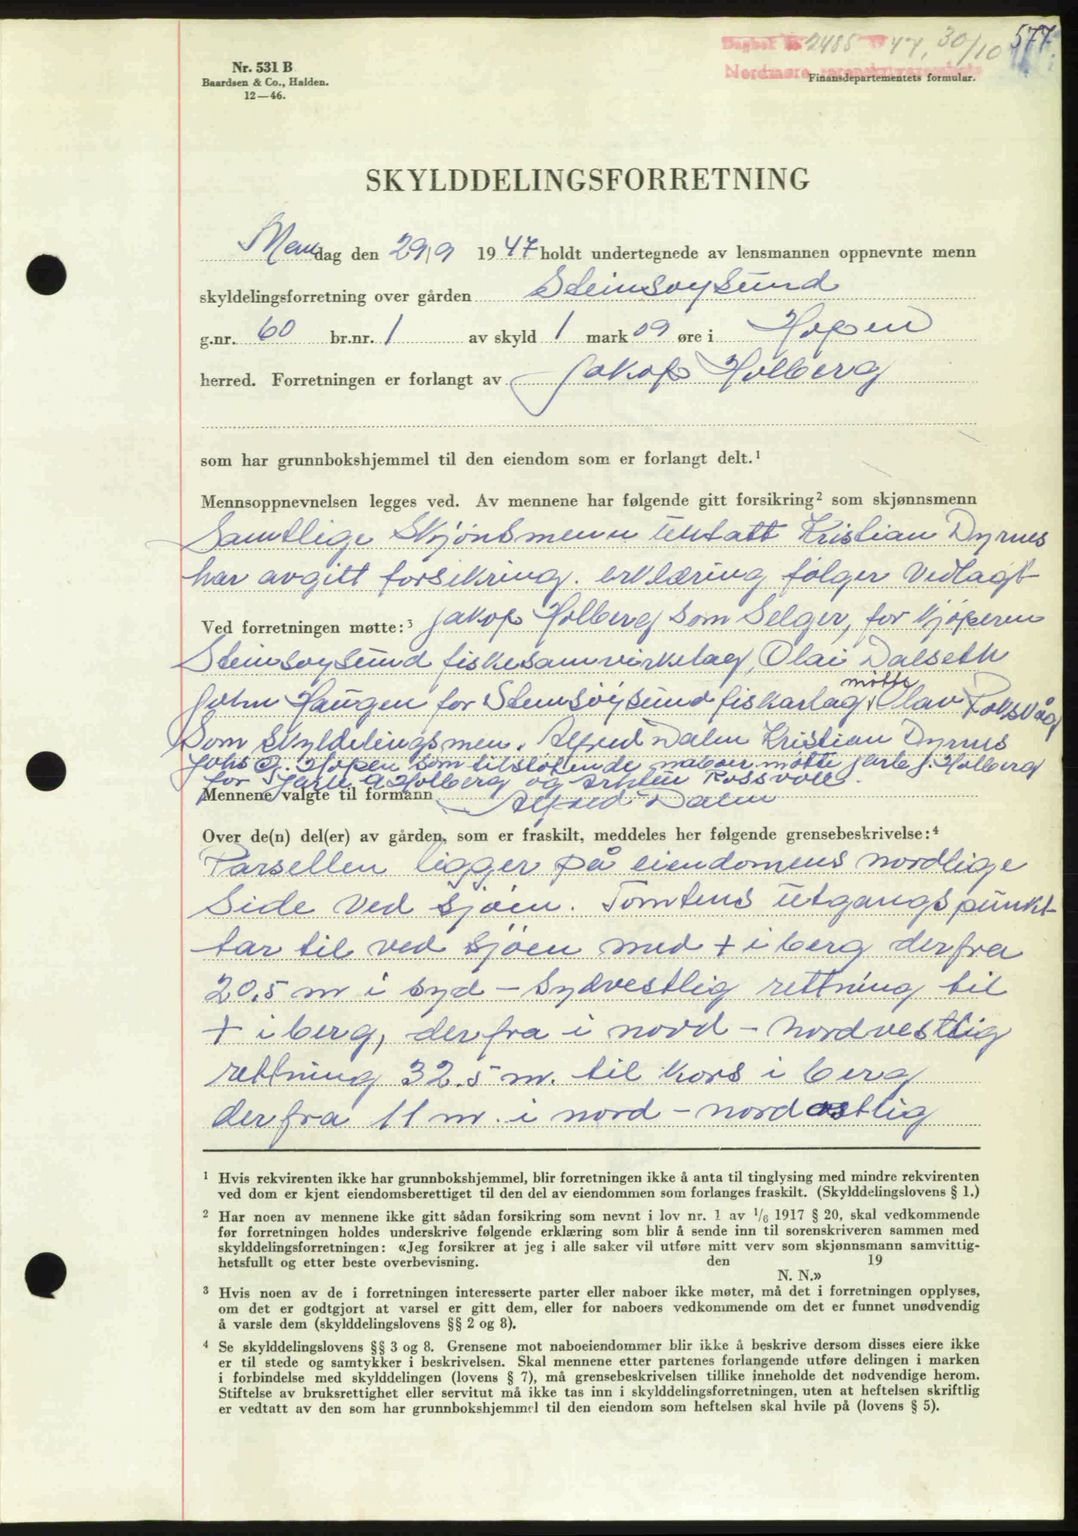 Dagbok nr 2485 1947, 30/10 577
Nordmøre sorenskriverembete
Nr. 531 B
Baardsen & Co., Halden.
12—46.
Finansdepartementets formular.
SKYLDDELINGSFORRETNING
Mandag den 29/9 1947 holdt undertegnede av lensmannen oppnevnte menn
skyldelingsforretning over gården Steinsøysund
g.nr. 60 br.nr. 1 av skyld 1 mark 09 øre i Hopen
herred. Forretningen er forlangt av Jakop Holberg
som har grunnbokshjemmel til den eiendom som er forlangt delt.¹
Mennsoppnevnelsen legges ved. Av mennene har følgende gitt forsikring² som skjønnsmenn
Samtlige Skjönsmenn untatt Kristian Dyrnes
har avgitt forsikring. erklæring følger vedlagt
Ved forretningen møtte:³ Jakop Holberg som Selger, for kjøperen
Steinsøysund fiskesamvirkelag, Olai Dalseth
John Haugen for Steinsöysund fiskarlag, møtte Olav Rokskåg
Som skyldelingsmen. Alfred Dalen Kristian Dyrnes
Johs G. Hopen som tilstøtende naboer møtte Jarle J. Holberg
for Jarle G Holberg og Rossvoll.
Mennene valgte til formann Alfred Dalen
Over de(n) del(er) av gården, som er fraskilt, meddeles her følgende grensebeskrivelse:⁴
Parsellen ligger på eiendomens nordlige
Side ved sjøen. Tomtens utgangspunkt
tar til ved sjøen med + i berg derfra
20.5 m i syd – sydvestlig rettning til
+ i berg, derfra i nord – nordvestlig
rettning 32.5 m. til kors i berg
derfra 11 m. i nord – nordostlig
¹ Hvis rekvirenten ikke har grunnbokshjemmel, blir forretningen ikke å anta til tinglysing med mindre rekvirenten
ved dom er kjent eiendomsberettiget til den del av eiendommen som forlanges fraskilt. (Skylddelingslovens § 1.)
² Har noen av mennene ikke gitt sådan forsikring som nevnt i lov nr. 1 av 1/6 1917 § 20, skal vedkommende
før forretningen holdes underskrive følgende erklæring som blir å sende inn til sorenskriveren sammen med
skylddelingsforretningen: «Jeg forsikrer at jeg i alle saker vil utføre mitt verv som skjønnsmann samvittig-
hetsfullt og etter beste overbevisning. den 19
N. N.»
³ Hvis noen av de i forretningen interesserte parter eller naboer ikke møter, må det i forretningen opplyses,
om det er godtgjort at varsel er gitt dem, eller for naboers vedkommende om det er funnet unødvendig
å varsle dem (skylddelingslovens §§ 2 og 8).
⁴ Se skylddelingslovens §§ 3 og 8. Grensene mot naboeiendommer blir ikke å beskrive dersom disses eiere ikke
er til stede og samtykker i beskrivelsen. Skal mennene etter partenes forlangende utføre delingen i marken
i forbindelse med skylddelingen (lovens § 7), må grensebeskrivelsen tillike inneholde det nødvendige herom.
Stiftelse av bruksrettighet eller servitut må ikke tas inn i skylddelingsforretningen, uten at heftelsen skriftlig
er vedtatt av den som har grunnbokshjemmel til den eiendom som heftelsen skal hvile på (lovens § 5).